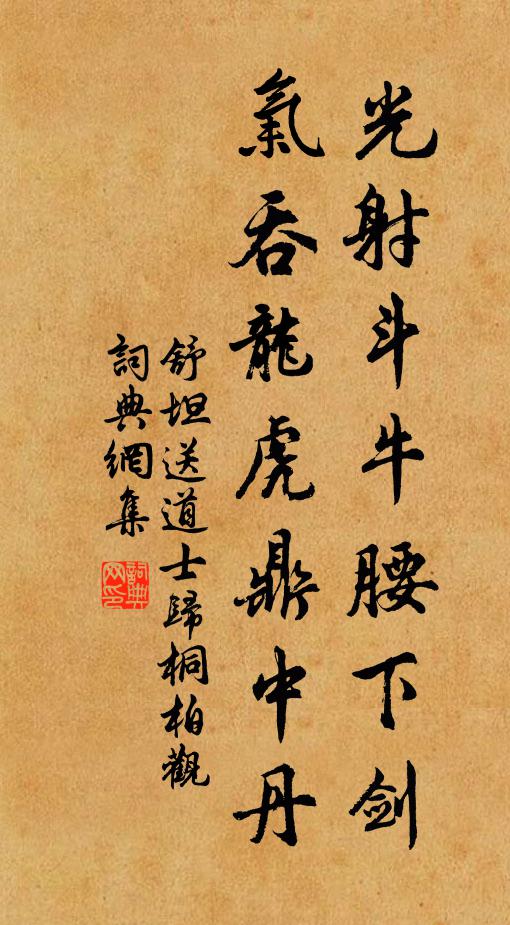 光射斗牛腰下剑
氣吞龍虎鼎中丹
舒坦送道士歸桐柏觀
詞典網集
詞典网印